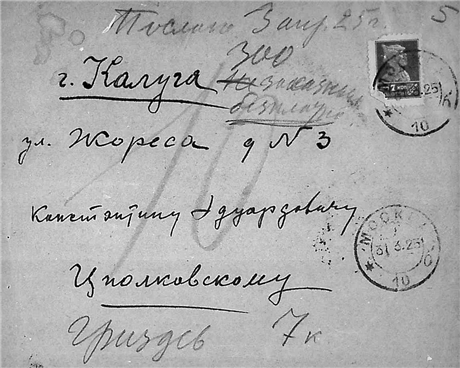 Послано 3 апр. 25г.
5
300
г. Калуга
ул. Жореса д № 3
10
Константину Эдуардовичу
Циолковскому
7к
МОСКВА
31.3.25
10
25
10